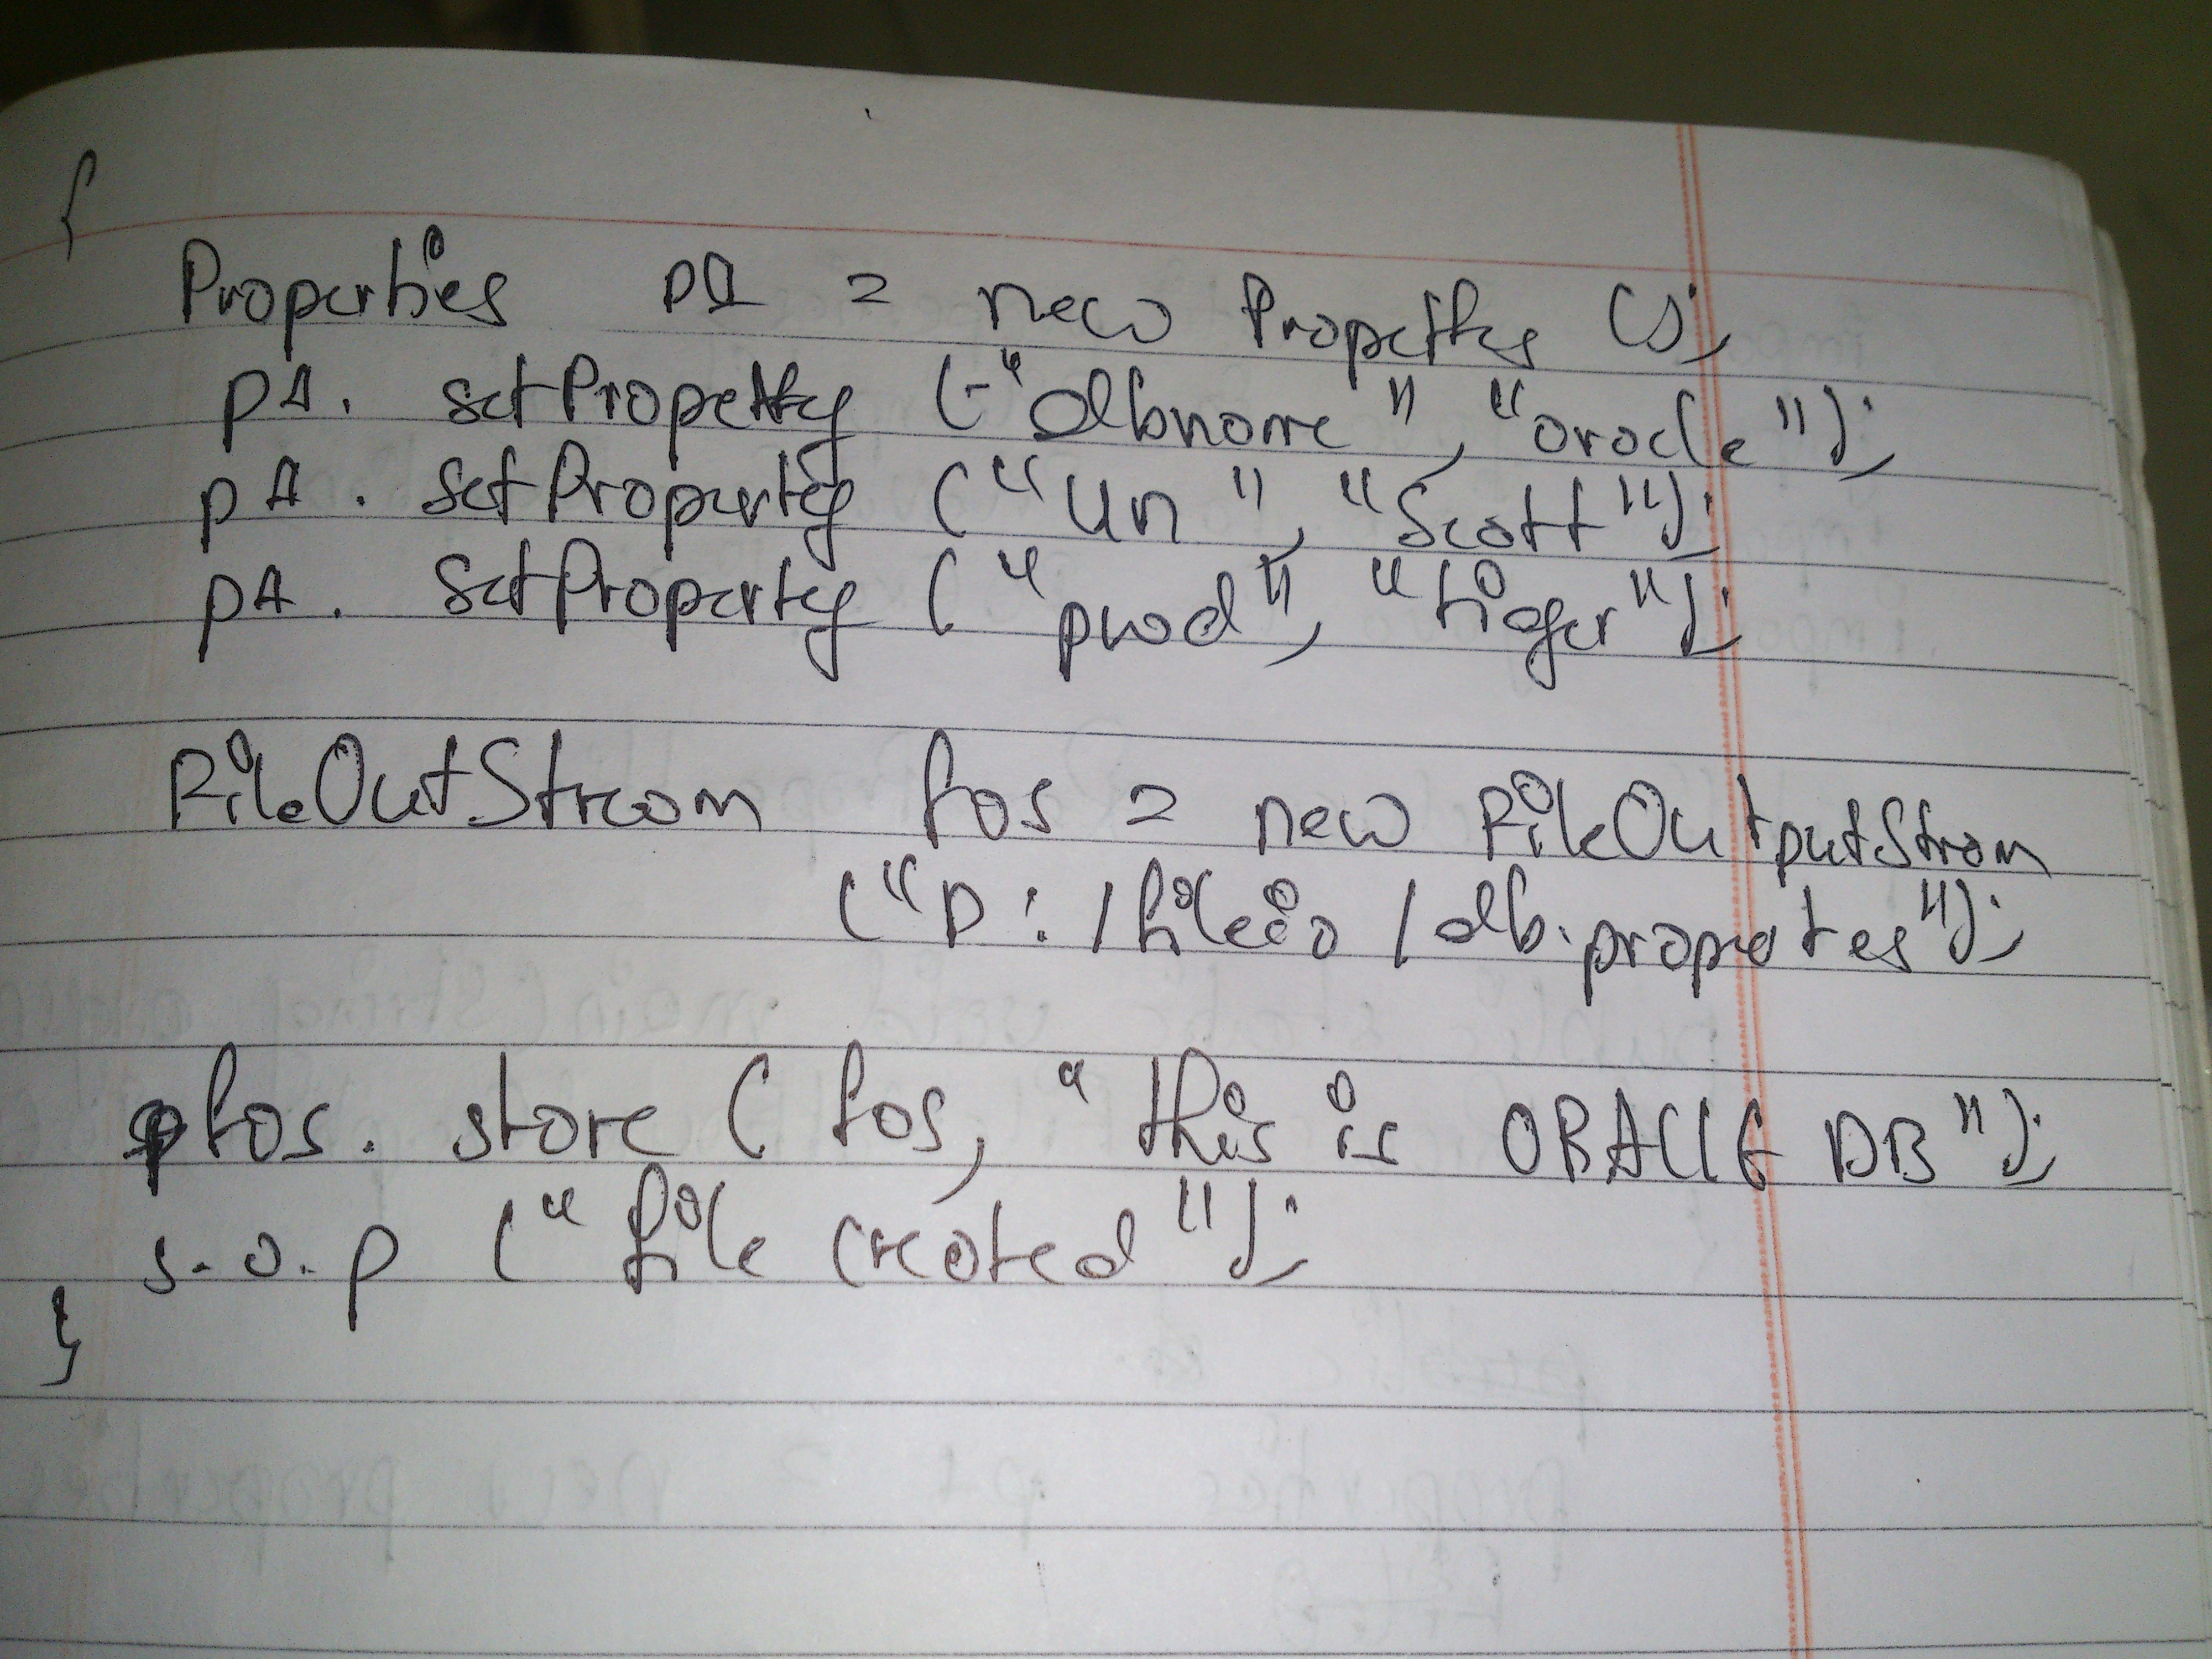 {
Properties p1 = new Properties ();
p1. setProperty ("dbname", "oracle");
p1. setProperty ("un", "Scott");
p1. setProperty ("pwd", "tiger");
FileOutStream fos = new FileOutputStream
("D:/fileio/db.properties");
fos. store (fos, "this is ORACLE DB");
s.o.p ("file created");
}